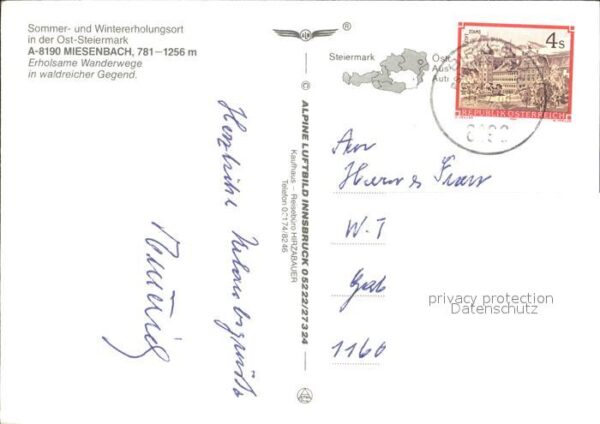 Sommer- und Wintererholungsort
in der Ost-Steiermark
A-8190 MIESENBACH, 781–1256 m
Erholsame Wanderwege
in waldreicher Gegend.
Herzliche Urlaubsgrüße
®
© ALPINE LUFTBILD INNSBRUCK 0 52 22/2 73 24
Kaufhaus – Reisebüro HIRZABAUER
Telefon 03174/8246
Steiermark
Ost-
Aus
Aut
STAMS
4 S
REPUBLIK ÖSTERREICH
8190
An
Herrn &
W.T
1160
privacy protection
Datenschutz